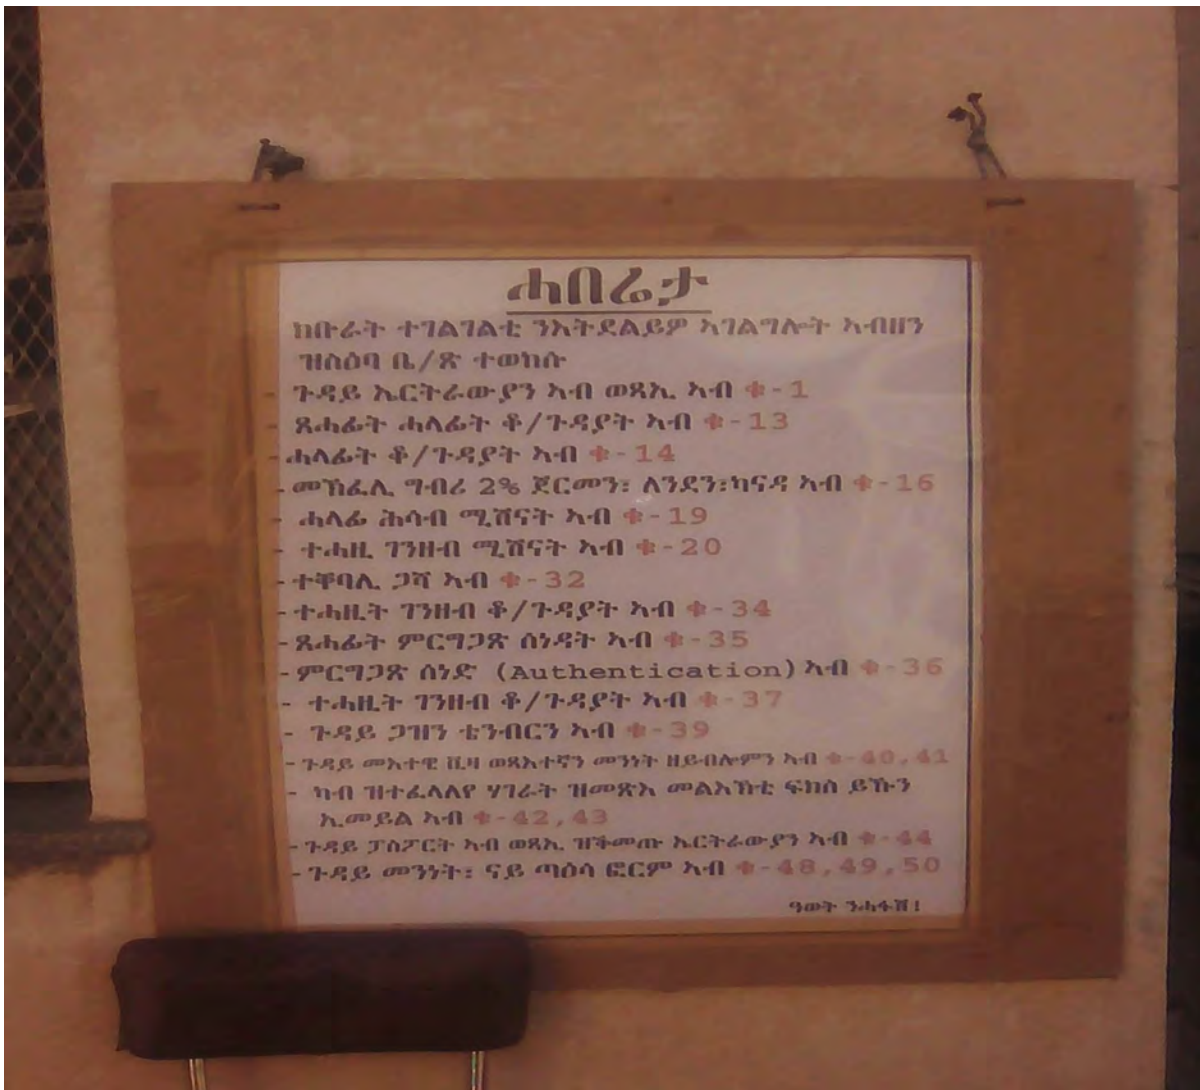 ሓበሬታ
ክቡራት ተገልገልቲ ንእትደልይዎ ኣገልግሎት ኣብዘን
ዝስዕባ ቤ/ጽ ተወከሱ
- ጉዳይ ኤርትራውያን ኣብ ወጻኢ ኣብ ቁ-1
- ጸሓፊት ሓላፊት ቆ/ጉዳያት ኣብ ቁ-13
- ሓላፊት ቆ/ጉዳያት ኣብ ቁ-14
- መኽፈሊ ግብሪ 2% ጀርመን፣ ለንደን፣ካናዳ ኣብ ቁ-16
- ሓላፊ ሕሳብ ሚሽናት ኣብ ቁ-19
- ተሓዚ ገንዘብ ሚሽናት ኣብ ቁ-20
- ተቐባሊ ጋሻ ኣብ ቁ-32
- ተሓዚት ገንዘብ ቆ/ጉዳያት ኣብ ቁ-34
- ጸሓፊት ምርግጋጽ ሰነዳት ኣብ ቁ-35
- ምርግጋጽ ሰነድ (Authentication) ኣብ ቁ-36
- ተሓዚት ገንዘብ ቆ/ጉዳያት ኣብ ቁ-37
- ጉዳይ ጋዝን ቴንብርን ኣብ ቁ-39
- ጉዳይ መእተዊ ቪዛ ወጻእተኛን መንነት ዘይብሎምን ኣብ ቁ-40,41
- ካብ ዝተፈላለየ ሃገራት ዝመጽእ መልእኽቲ ፍክስ ይኹን
ኢመይል ኣብ ቁ-42,43
- ጉዳይ ፓስፖርት ኣብ ወጻኢ ዝቕመጡ ኤርትራውያን ኣብ ቁ-44
- ጉዳይ መንነት፣ ናይ ጣዕሳ ፎርም ኣብ ቁ-48,49,50
ዓወት ንሓፋሽ!